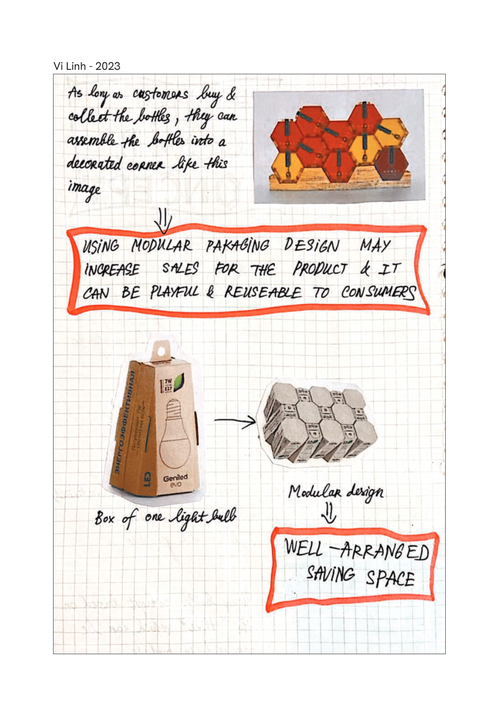 Vi Linh - 2023
As long as customers buy &
collect the bottles, they can
assemble the bottles into a
decorated corner like this
image
USING MODULAR PAKAGING DESIGN MAY
INCREASE SALES FOR THE PRODUCT & IT
CAN BE PLAYFUL & REUSEABLE TO CONSUMERS
ЭНЕРГОЭФФЕКТИВНАЯ
LED
7W
E27
Geniled
evo
Box of one light bulb
Modular design
WELL-ARRANGED
SAVING SPACE